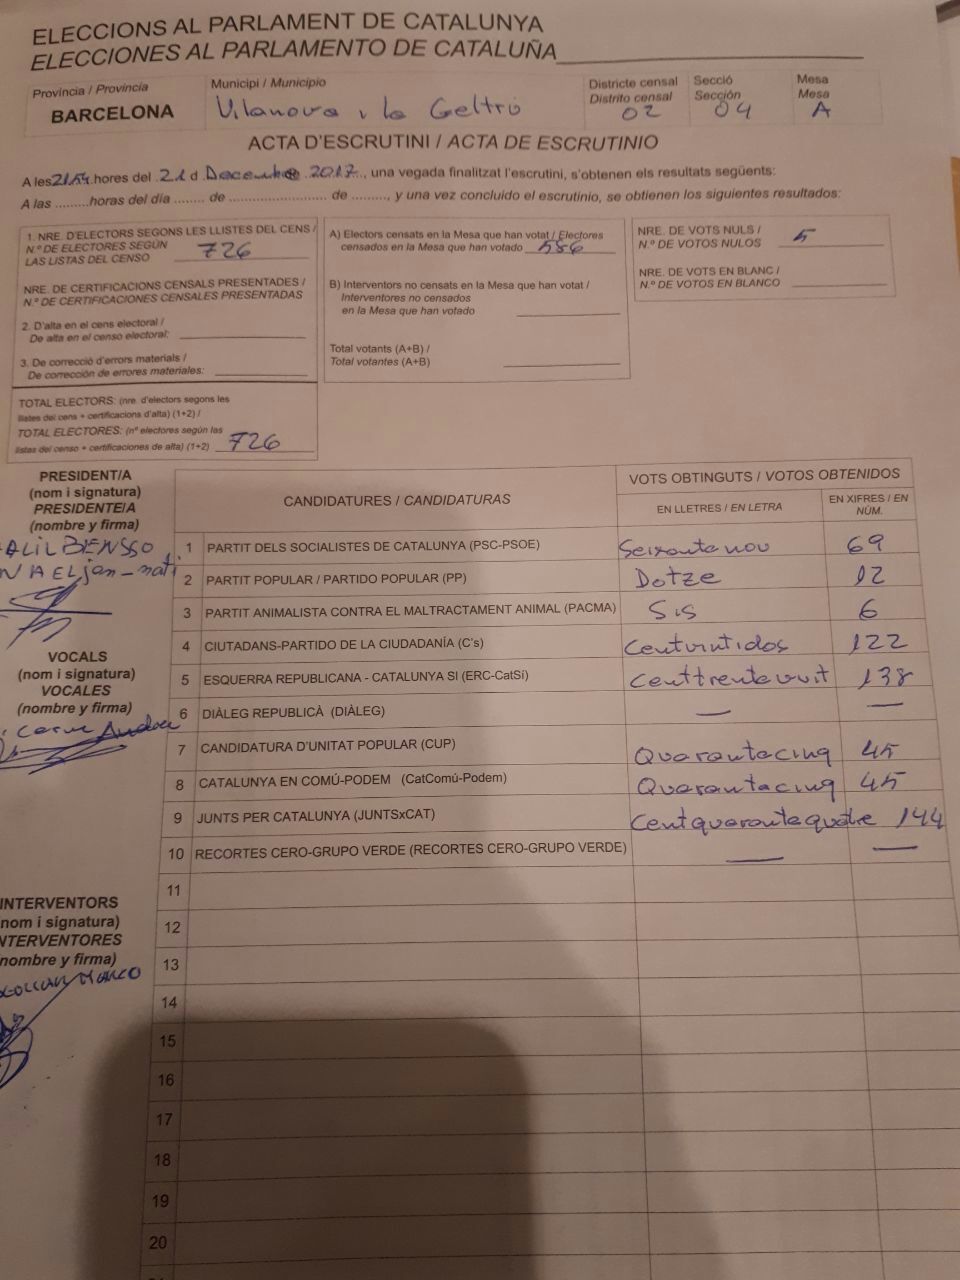 ELECCIONS AL PARLAMENT DE CATALUNYA
ELECCIONES AL PARLAMENTO DE CATALUÑA
Provincia / Provincia
BARCELONA
Municipi / Municipio
Vilanova i la Geltrú
Districte censal
Distrito censal
02
Secció
Sección
04
Mesa
Mesa
A
ACTA D'ESCRUTINI / ACTA DE ESCRUTINIO
A les 21:54 hores del 21 d Decembre 2017, una vegada finalitzat l'escrutini, s'obtenen els resultats següents:
A las .........horas del día ........ de ......................... de ........., y una vez concluido el escrutinio, se obtienen los siguientes resultados:
1. NRE. D'ELECTORS SEGONS LES LLISTES DEL CENS /
N.º DE ELECTORES SEGÚN
LAS LISTAS DEL CENSO 726
NRE. DE CERTIFICACIONS CENSALS PRESENTADES /
N.º DE CERTIFICACIONES CENSALES PRESENTADAS
2. D'alta en el cens electoral /
De alta en el censo electoral:
3. De correcció d'errors materials /
De corrección de errores materiales:
TOTAL ELECTORS: (nre. d'electors segons les
llistes del cens + certificacions d'alta) (1+2) /
TOTAL ELECTORES: (nº electores según las
listas del censo + certificaciones de alta) (1+2) 726
A) Electors censats en la Mesa que han votat / Electores
censados en la Mesa que han votado 586
B) Interventors no censats en la Mesa que han votat /
Interventores no censados
en la Mesa que han votado
Total votants (A+B) /
Total votantes (A+B)
NRE. DE VOTS NULS /
N.º DE VOTOS NULOS 5
NRE. DE VOTS EN BLANC /
N.º DE VOTOS EN BLANCO
PRESIDENT/A
(nom i signatura)
PRESIDENTE/A
(nombre y firma)
VOCALS
(nom i signatura)
VOCALES
(nombre y firma)
INTERVENTORS
(nom i signatura)
INTERVENTORES
(nombre y firma)
CANDIDATURES / CANDIDATURAS
VOTS OBTINGUTS / VOTOS OBTENIDOS
EN LLETRES / EN LETRA
EN XIFRES / EN NÚM.
1 PARTIT DELS SOCIALISTES DE CATALUNYA (PSC-PSOE) Seixanta nou 69
2 PARTIT POPULAR / PARTIDO POPULAR (PP) Dotze 12
3 PARTIT ANIMALISTA CONTRA EL MALTRACTAMENT ANIMAL (PACMA) Sis 6
4 CIUTADANS-PARTIDO DE LA CIUDADANÍA (C's) Centvintidos 122
5 ESQUERRA REPUBLICANA - CATALUNYA SI (ERC-CatSí) Centtrentavuit 138
6 DIÀLEG REPUBLICÀ (DIÀLEG) — —
7 CANDIDATURA D'UNITAT POPULAR (CUP) Quarantacinq 45
8 CATALUNYA EN COMÚ-PODEM (CatComú-Podem) Quarantacinq 45
9 JUNTS PER CATALUNYA (JUNTSxCAT) Centquarantaquatre 144
10 RECORTES CERO-GRUPO VERDE (RECORTES CERO-GRUPO VERDE) — —
11
12
13
14
15
16
17
18
19
20